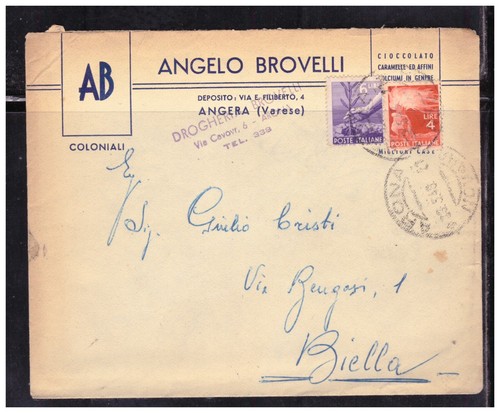 AB
COLONIALI
ANGELO BROVELLI
DEPOSITO: VIA E. FILIBERTO, 4
ANGERA (Varese)
CIOCCOLATO
CARAMELLE ED AFFINI
DOLCIUMI IN GENERE
MIGLIORI CASE
DROGHERIA BROVELLI
Via Cavour, 6
TEL. 339
LIRE
6
POSTE ITALIANE
LIRE
4
POSTE ITALIANE
ARONA
Sig. Giulio Cristi
Via Bengasi, 1
Biella